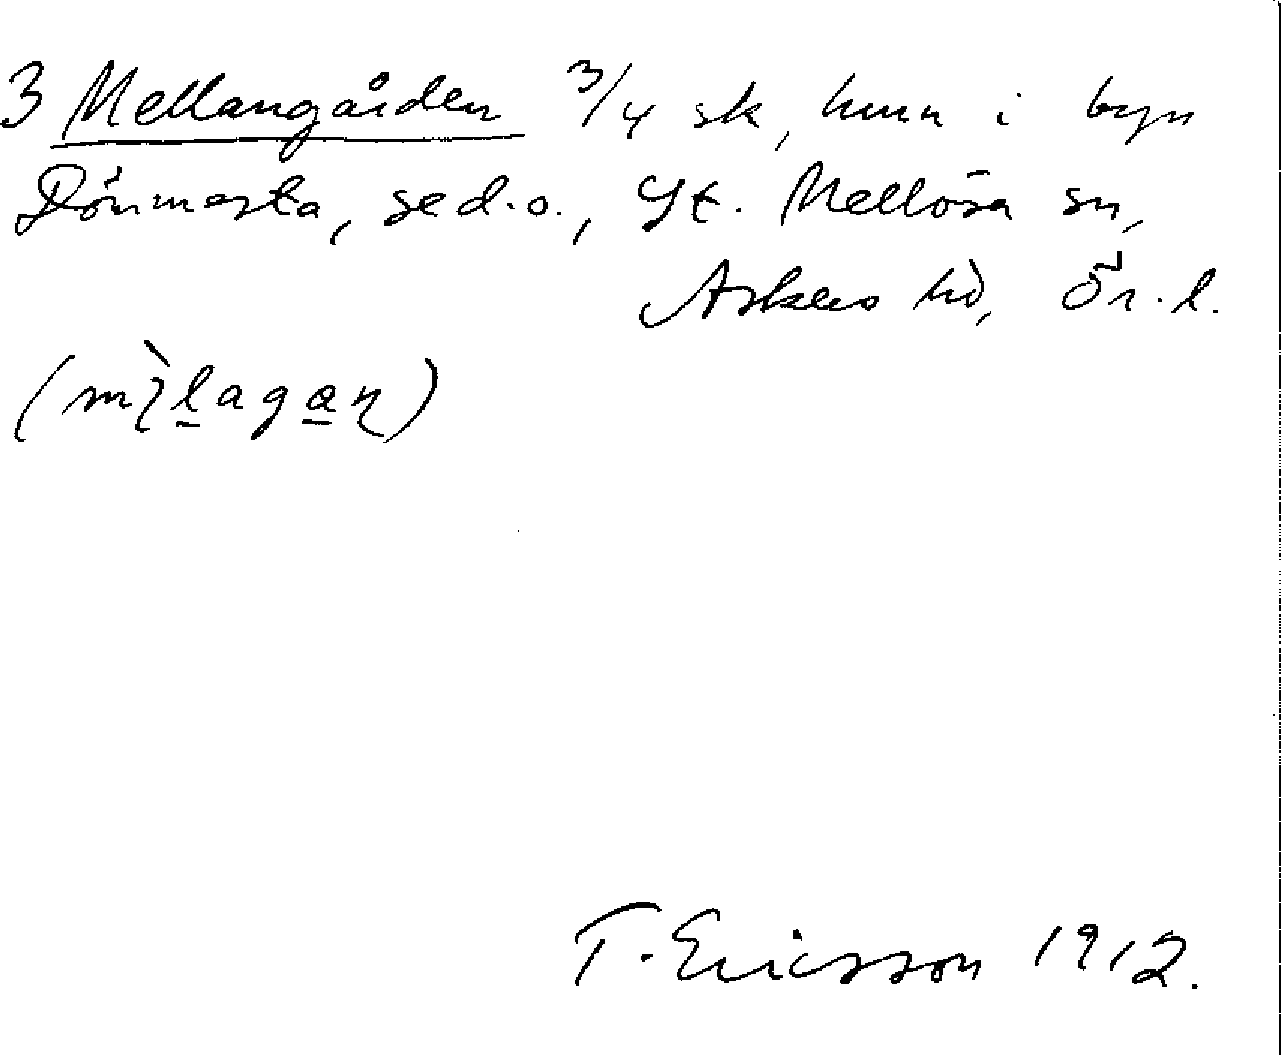 3 Mellangården 3/4 sk, hmn i byn
Dönmesta, se d.o., St. Mellösa sn,
Askers hd, Ör. l.
T. Ericsson 1912.